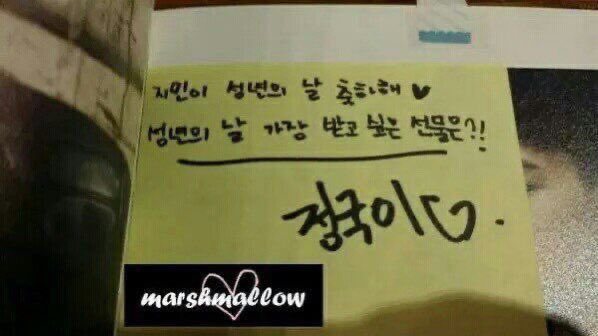 지민이 성년의 날 축하해 ♥
성년의 날 가장 받고 싶은 선물은?!
정국이♡.
marshmallow